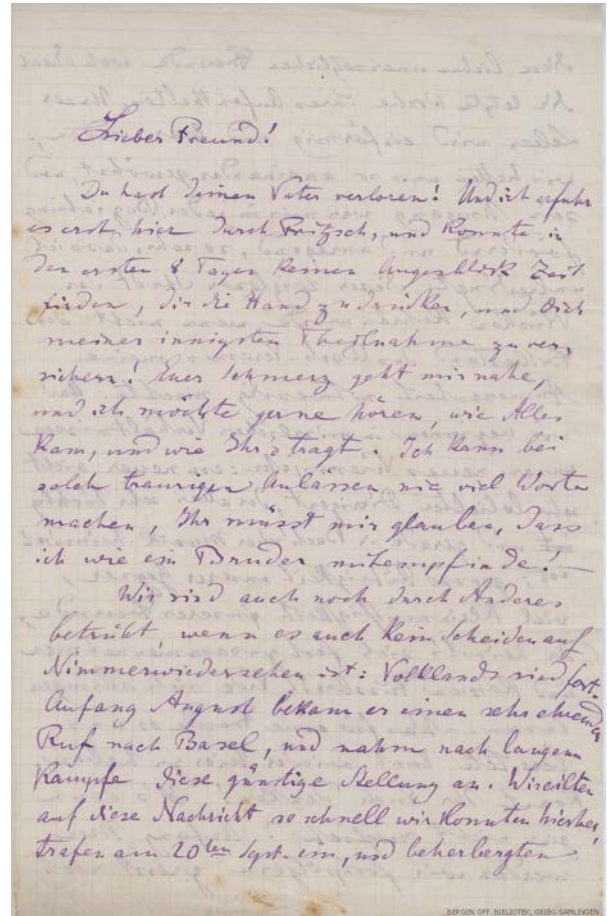 Lieber Freund!
Du hast Deinen Vater verloren! Und ich erfuhr
es erst hier durch Fritzsch, und konnte in
den ersten 8 Tagen keinen Augenblick Zeit
finden, dir die Hand zu drücken, und Dich
meiner innigsten Theilnahme zu ver,
sichern! Euer Schmerz geht mir nahe,
und ich möchte gerne hören, wie Alles
kam, und wie Ihr's tragt. Ich kann bei
solch traurigen Anlässen nie viel Worte
machen, Ihr müsst mir glauben, dass
ich wie ein Bruder mitempfinde! —
Wir sind auch noch durch Anderes
betrübt, wenn es auch kein Scheiden auf
Nimmerwiedersehen ist: Volklands sind fort.
Anfang August bekam er einen sehr ehrenden
Ruf nach Basel, und nahm nach langem
Kampfe diese günstige Stellung an. Wir eilten
auf diese Nachricht so schnell wir konnten hierher,
trafen am 20ten Sept. ein, und beherbergten
BERGEN OFF. BIBLIOTEK, GRIEG-SAMLINGEN